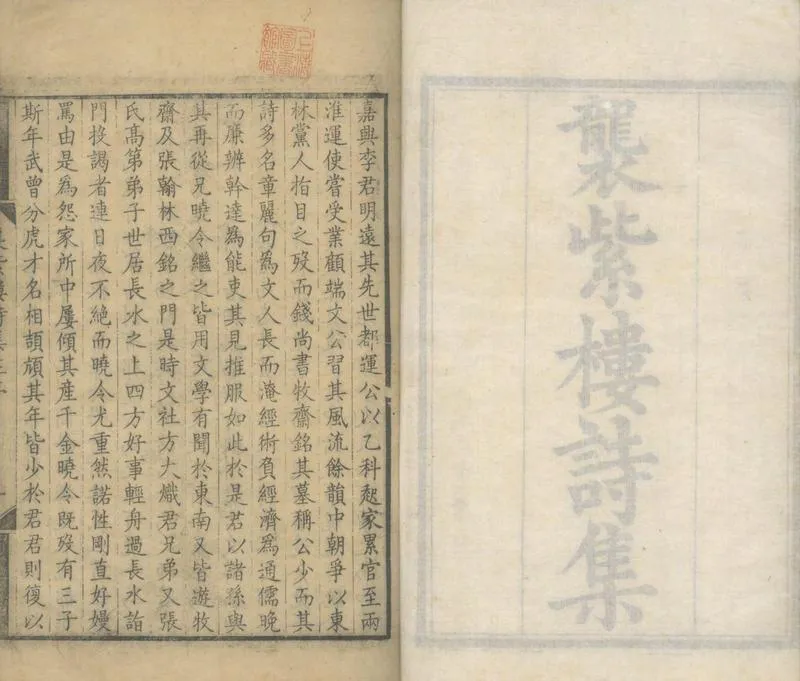 襲紫樓詩集
上海
圖書
館藏
嘉興李君明遠其先世都運公以乙科起家累官至兩
淮運使嘗受業顧端文公習其風流餘韻中朝爭以東
林黨人指目之歿而錢尚書牧齋銘其墓稱公少而其
詩多名章麗句為文人長而淹經術負經濟為通儒晚
而廉辨幹達為能吏其見推服如此於是君以諸孫與
其再從兄曉令繼之皆用文學有聞於東南又皆遊牧
齋及張翰林西銘之門是時文社方大熾君兄弟又張
氏高第弟子世居長水之上四方好事輕舟過長水詣
門投謁者連日夜不絕而曉令尤重然諾性剛直好嫚
罵由是為怨家所中屢傾其產千金曉令既歿有三子
斯年武曾分虎才名相頡頏其年皆少於君君則復以